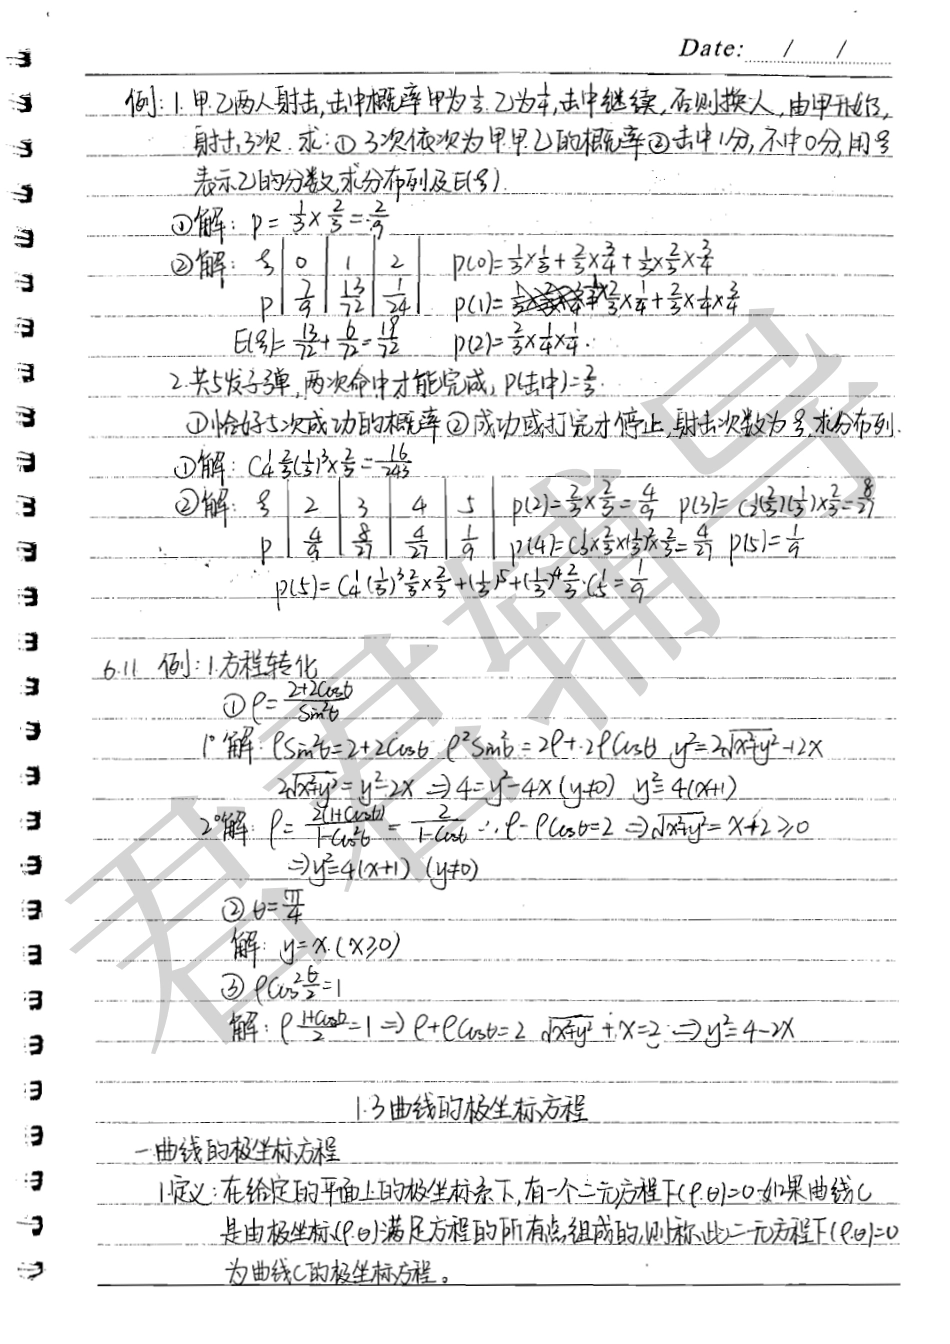 Date: / /
例:1.甲.乙两人射击,击中概率甲为1/3.乙为1/4,击中继续,否则换人,由甲开始,
射击3次.求:①3次依次为甲.甲.乙的概率②击中1分,不中0分,用ξ
表示乙的分数,求分布列及E(ξ).
①解: P=1/3×2/3=2/9
②解: ξ | 0 | 1 | 2 P(0)=1/3×1/3+2/3×3/4+1/3×2/3×3/4
P | 7/9 | 13/72 | 1/24 | P(1)=1/3×2/3×1/4+2/3×1/4×3/4
E(ξ)=13/72+6/72=19/72 P(2)=2/3×1/4×1/4.
2.共5发子弹,两次命中才能完成,P(击中)=2/3.
①恰好5次成功的概率②成功或打完才停止,射击次数为ξ,求分布列.
①解: C4^1 2/3(1/3)^3×2/3=16/243
②解: ξ | 2 | 3 | 4 | 5 | P(2)=2/3×2/3=4/9 P(3)=C2^1(2/3)(1/3)×2/3=8/27
P | 4/9 | 8/27 | 4/27 | 1/9 | P(4)=C3^1×2/3×(1/3)^2×2/3=4/27 P(5)=1/9
P(5)=C4^1(1/3)^3 2/3×2/3+(1/3)^5+(1/3)^4 2/3·C5^1=1/9
6.11 例:1.方程转化
①ρ=(2+2cosθ)/sin²θ
1°解:ρsin²θ=2+2cosθ ρ²sin²θ=2ρ+2ρcosθ y²=2√(x²+y²)+2x
2√(x²+y²)=y²-2x ⇒4=y²-4x(y≠0) y²=4(x+1)
2°解: ρ=2(1+cosθ)/(1-cos²θ)=2/(1-cosθ) ∴ρ-ρcosθ=2 ⇒√(x²+y²)=x+2≥0
⇒y²=4(x+1) (y≠0)
②θ=π/4
解: y=x.(x≥0)
③ρcos²θ/2=1
解: ρ(1+cosθ)/2=1⇒ρ+ρcosθ=2 √(x²+y²)+x=2 ⇒y²=4-2x
1.3曲线的极坐标方程
一.曲线的极坐标方程
1.定义:在给定的平面上的极坐标系下,有一个二元方程F(ρ.θ)=0.如果曲线C
是由极坐标(ρ.θ)满足方程的所有点组成的,则称此二元方程F(ρ.θ)=0
为曲线C的极坐标方程。
君君辅导